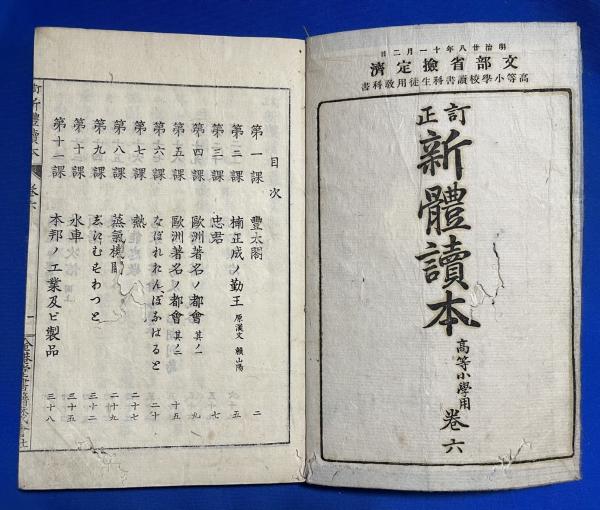 明治廿八年十一月二日
文部省撿定濟
高等小學校讀書科生徒用敎科書
訂正
新體讀本
高等小學用
卷六
目次
第一課 豐太閤 二
第二課 楠正成ノ勤王 原漢文 賴山陽 五
第三課 忠君 七
第四課 歐洲著名ノ都會 其ノ一 九
第五課 歐洲著名ノ都會 其ノ二 十五
第六課 なぽれおん、ぼなぱると 二十
第七課 熱 二十七
第八課 蒸氣機關 二十九
第九課 ゑむすわつと 三十二
第十課 水車 三十五
第十一課 本邦ノ工業及ビ製品 三十八
訂正新體讀本
卷六
一